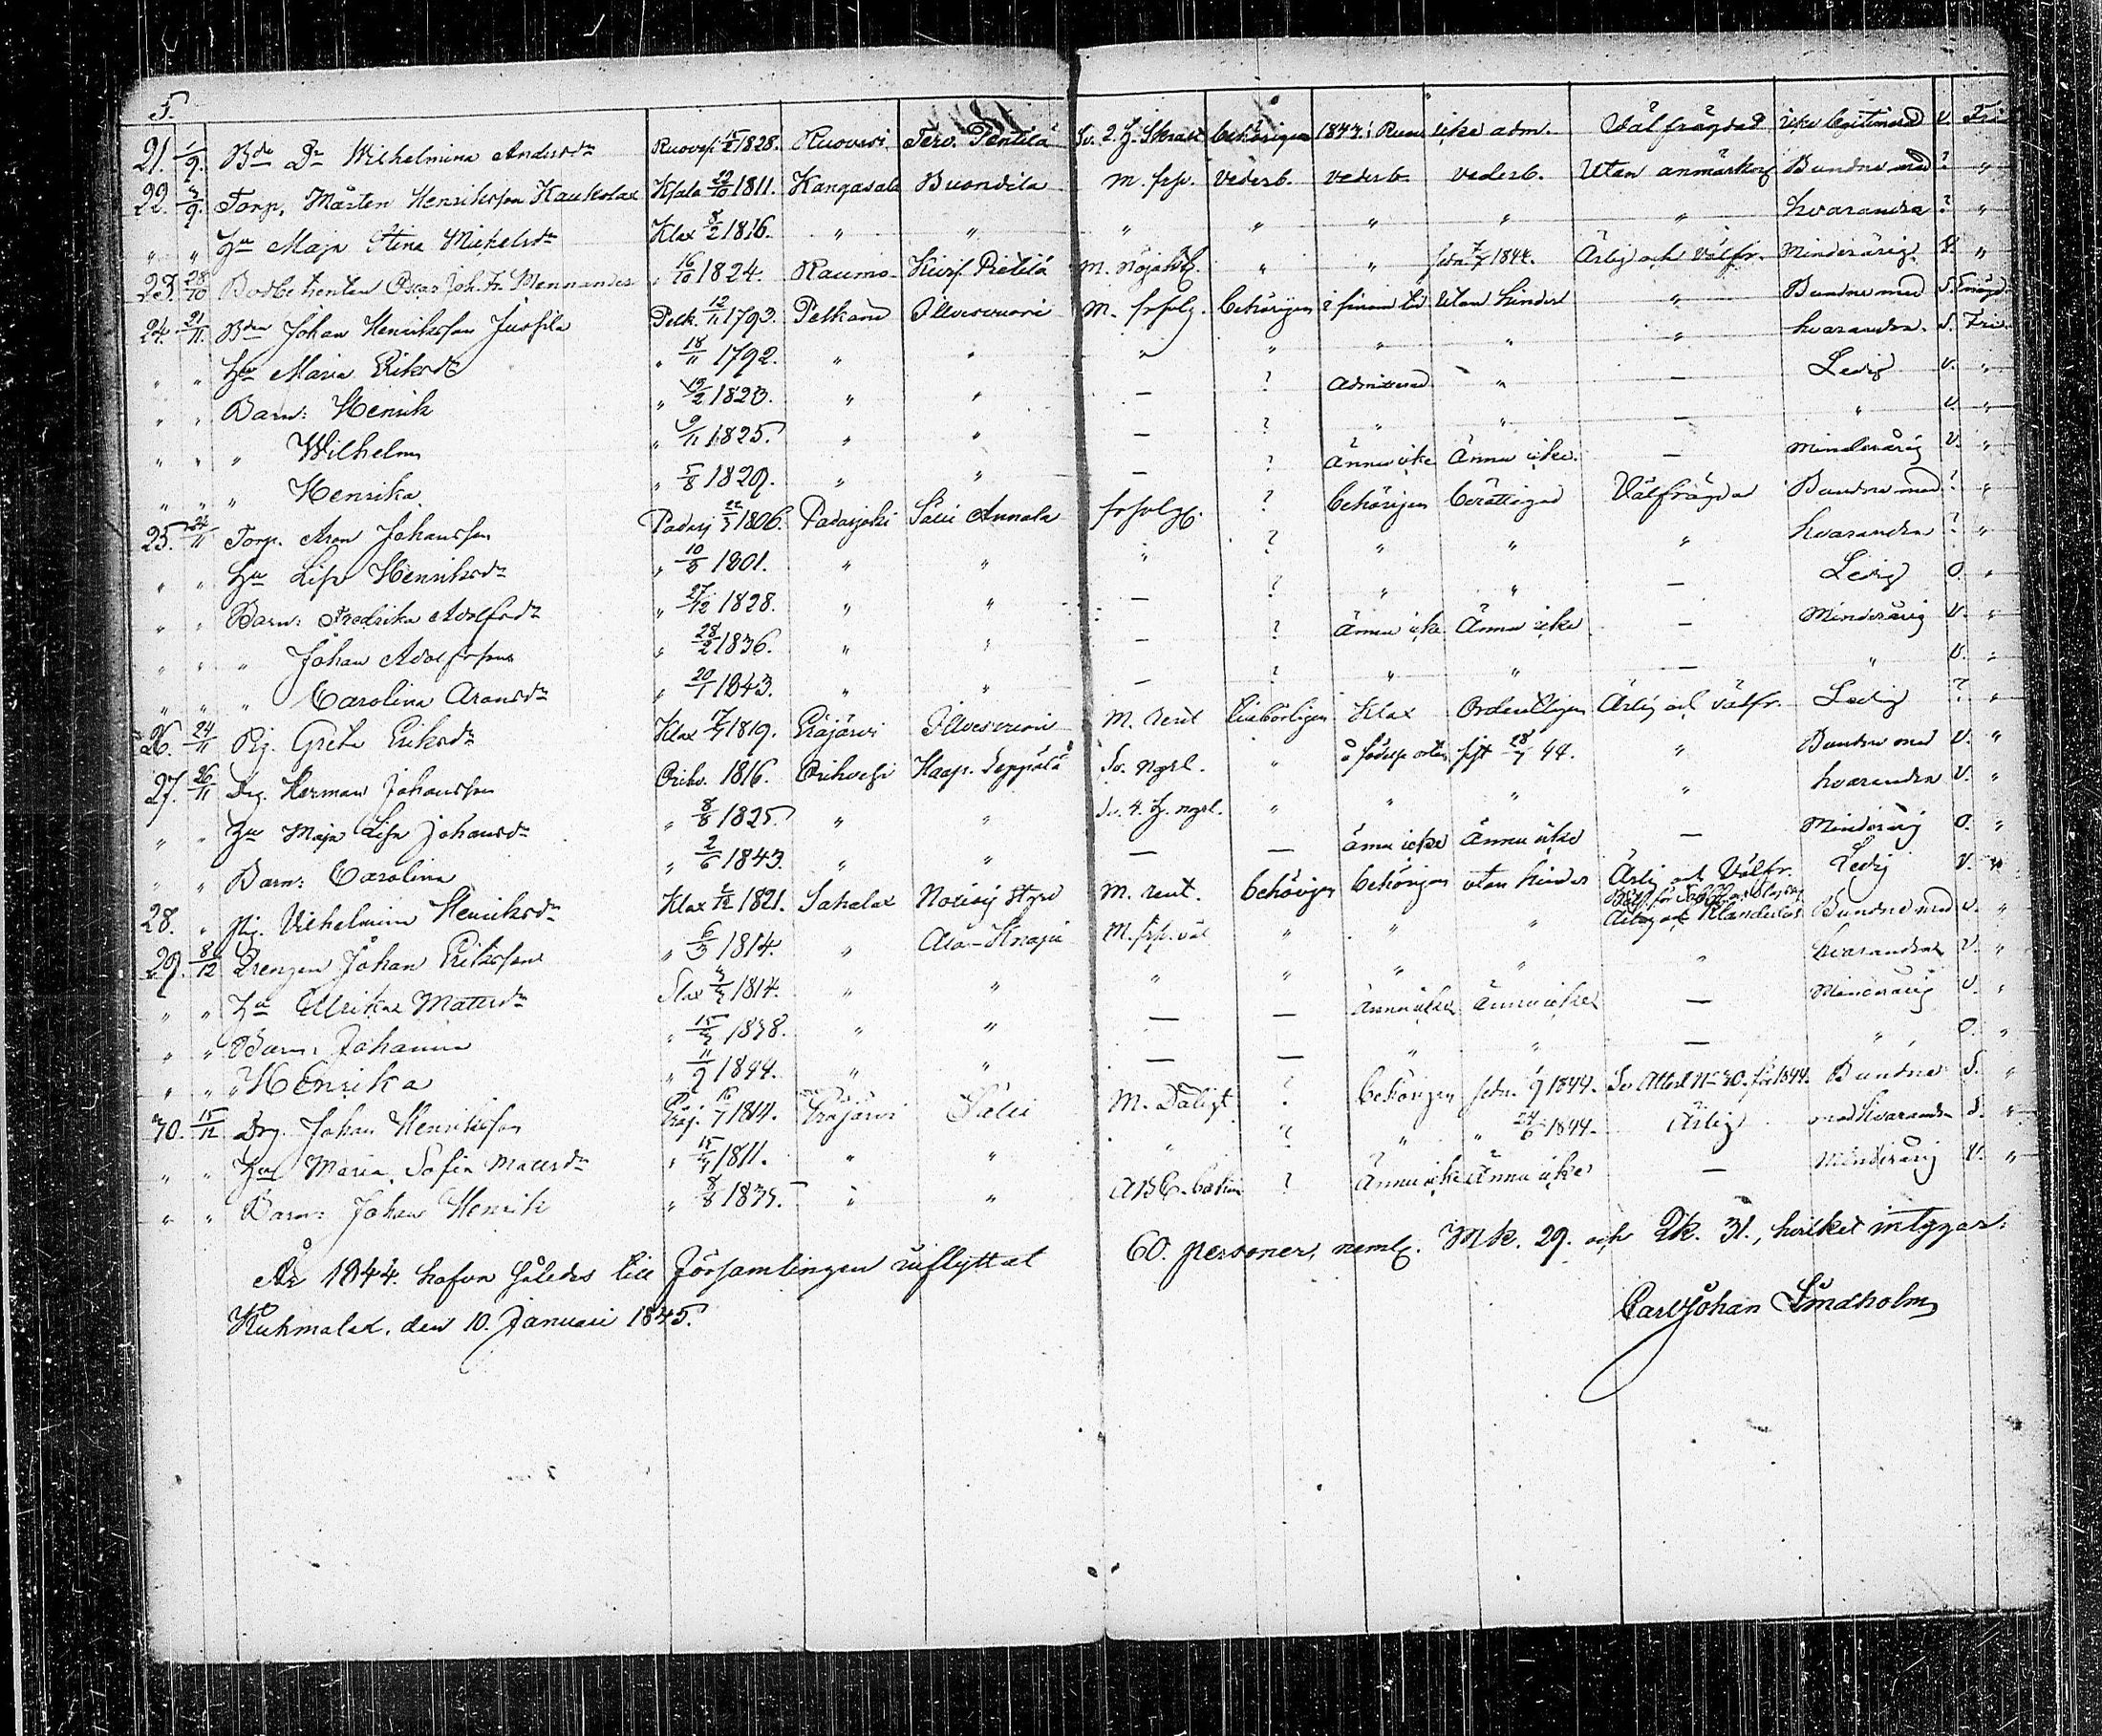 5.
21. 1/9. Bde Dr Wilhelmina Andersdr Ruovesi 15/2 1828. Ruovesi Terv. Pentilä Sv. 2. H. Skralt behörigen 1844 i Ruov icke adm. Välfrägdad icke legitimerad V. Fri
22. 3/9. Torp. Mårten Henriksson Kauholax Ksala 29/10 1811. Kangasala Buondila M. frsv. vederb. vederb. vederb. Utan anmärkng Bundne med ? "
" " Hu Maja Stina Mickelsdr Klax 8/2 1816. " " " " " " " hvarandra ? "
23. 28/10 Bodbetjenten Oscar Joh. Fr. Mennander " 16/10 1824. Raumo Kuif. Pietilä M. Nöjaktl. " " sedn 7/7 1844. Ärlig och Välfr. Minderårig V. "
24. 21/11. Bden Johan Henriksson Jussila Pelk. 12/11 1793. Pelkane Illvesvuori M. frsvlg. behörigen i sinom tid Utan hinder " Bundne med S.
" " Hu Maria Eriksdr " 18/11 1792. " " " " " " " hvarandra. S. Fri.
" " Barn: Henrik " 19/2 1823. " " — ? Admitterad " — Ledig V. "
" " " Wilhelm " 9/11 1825. " " — ? " " — " V. "
" " " Henrika " 5/8 1829. " " — ? Ännu icke Ännu icke. — Minderårig V. "
25. 24/11 Torp. Aron Johansson Padasj 22/3 1806. Padasjoki Säii Annala frsvlgt. ? behörigen berättigad Välfrägda Bundne med ? "
" " Hu Lisa Henriksdr " 10/8 1801. " " " ? " " " hvarandra ? "
" " Barn: Fredrika Adolfsdr " 27/12 1828. " " — ? " " — Ledig O. "
" " " Johan Adolfsson " 28/2 1836. " " — ? Ännu icke Ännu icke — Minderårig V. "
" " " Carolina Aronsdr " 20/1 1843. " " — ? " " — " V. "
26. 24/11 Pig. Greta Eriksdr Klax 17/7 1819. Eräjärvi Illvesvuori M. rent tillbörligen Klax Ordentligen Ärlig och välfr. Ledig ? "
27. 26/11 Drg. Herman Johansson Orihv. 1816. Orihvesi Haap. Seppälä Sv. Ngrl. " sist 28/7 44. " Bundne med V. "
" " Hu Maja Lisa Johansdr " 8/8 1825. " " Sv. 4. H. ngrl. " " " " hvarandra V. "
" " Barn: Carolina " 2/6 1843. " " — — ännu icke Ännu icke — Minderårig O. "
28. " Pig. Vilhelmina Henriksdr Klax 5/12 1821. Sahalax M. rent. behörigen behörigen utan hinder Ärlig och Välfr. Ledig V. "
29. 8/12 Drengen Johan Eriksson " 6/3 1814. " Ala-Knapi M. frsv. väl " " " Ärlig och Klanderlös Bundne med V. "
" " Hu Ullrika Mattsdr Slax 4/3 1814. " " " " " " " hvarandra V. "
" " Barn: Johanna " 15/3 1838. " " — — Ännu icke Ännu icke — Minderårig V. "
" " " Henrika " 11/9 1844. " " — — " " — " O. "
30. 15/12 Drg. Johan Henriksson Eräj. 16/7 1814. Eräjärvi Säii M. Dåligt ? behörigen sedn. 1/9 1844. Se Attest No 30. för 1844. Bundne S. "
" " Hu Maria Sofia Mattsdr " 15/7 1811. " " " ? " " 24/6 1844. Ärlig med hvarandra S. "
" " Barn: Johan Henrik " 8/8 1835. " " ABC-boken ? Ännu icke Ännu icke — Minderårig V. "
År 1844. hafva således till Församlingen inflyttat 60. personer, neml. Mk. 29. och Qk. 31., hvilket intygar:
Kuhmalax, den 10. Januari 1845. Carl Johan Lindholm